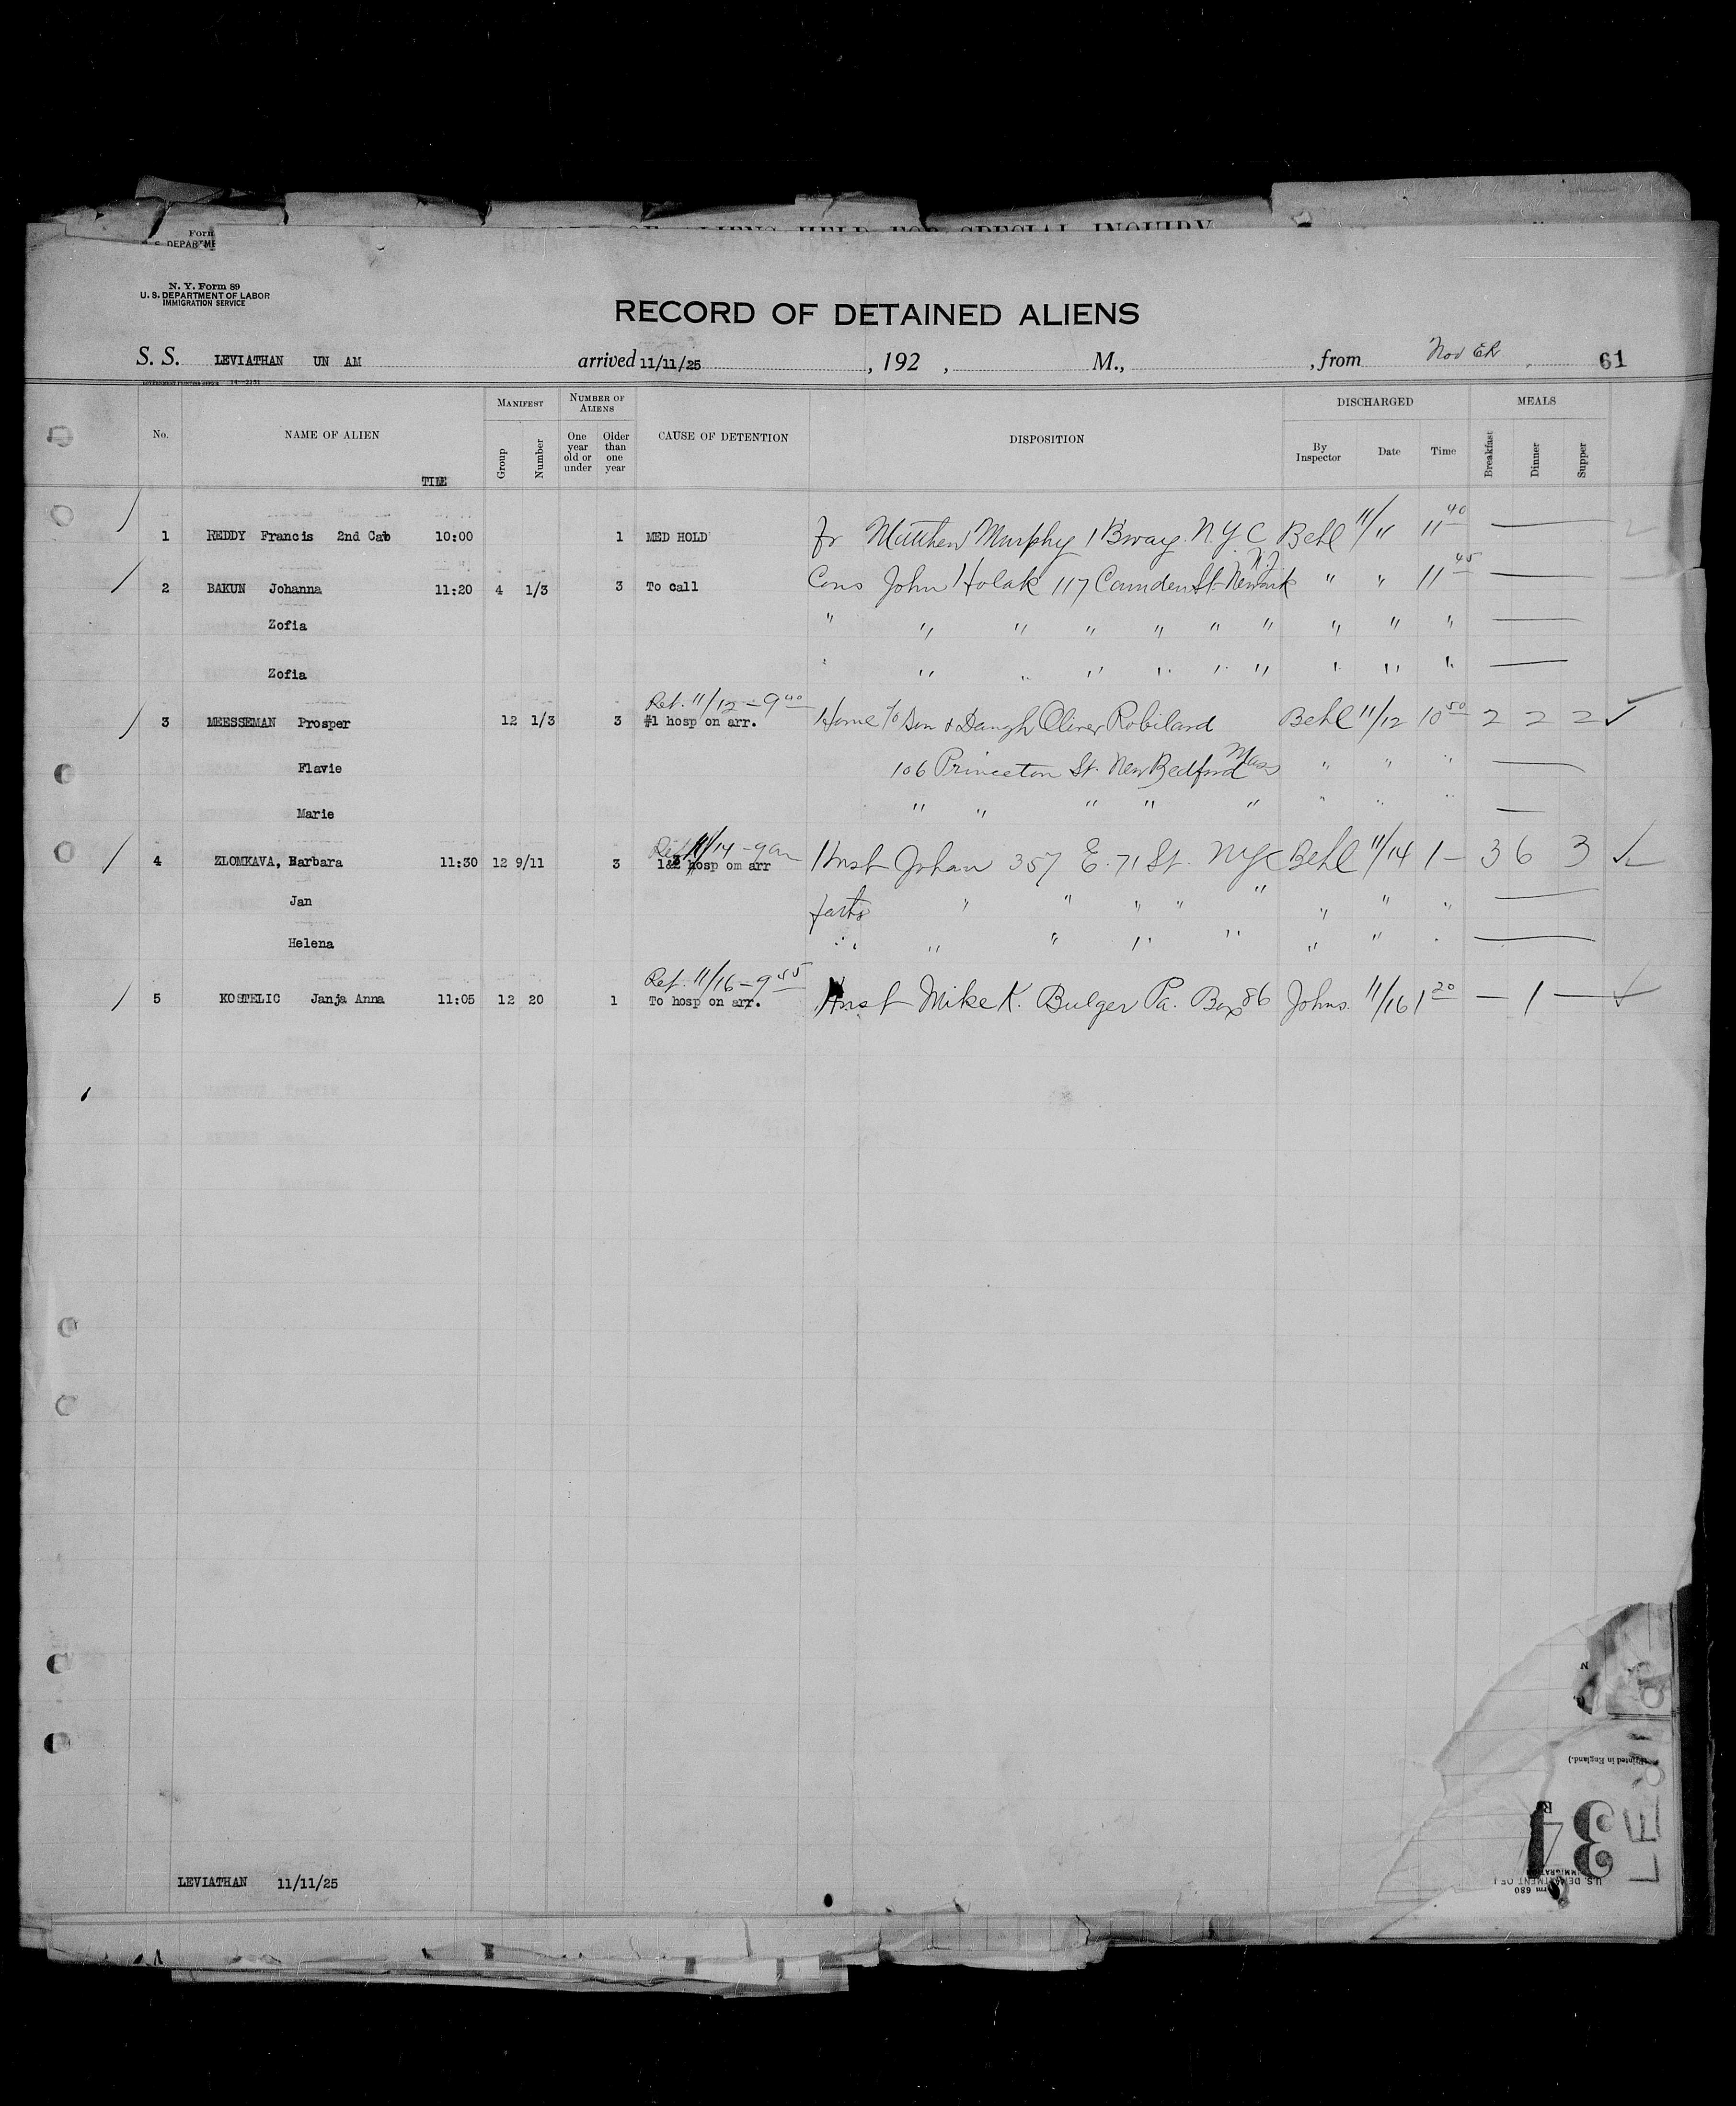 Form
U. S. DEPARTME
N. Y. Form 89
U. S. DEPARTMENT OF LABOR
IMMIGRATION SERVICE
RECORD OF DETAINED ALIENS
S. S. LEVIATHAN UN AM arrived 11/11/25, 192 , M., , from Nov 61
No. NAME OF ALIEN TIME MANIFEST Group Number NUMBER OF ALIENS One year old or under Older than one year CAUSE OF DETENTION DISPOSITION DISCHARGED By Inspector Date Time MEALS Breakfast Dinner Supper
1 REDDY Francis 2nd Cab 10:00 1 MED HOLD fr Matthew Murphy 1 Bway. N.Y.C Behl 11/" 11 40 —
2 BAKUN Johanna 11:20 4 1/3 3 To call Cons John Holak 117 Camden St. Newark N.J " " 11 45 —
Zofia " " " " " " " " " " —
Zofia " " " " " " " " " " —
Ret. 11/12 - 9 40
3 MEESSEMAN Prosper 12 1/3 3 #1 hosp on arr. Home To Son & Daugh Oliver Robilard Behl 11/12 10 50 2 2 2 ✓
Flavie 106 Princeton St. New Bedford Mass " " " —
Marie " " " " " " " " —
Ret 11/14 - 9 am
4 ZLOMKAVA, Barbara 11:30 12 9/11 3 1&2 hosp om arr Hust Johan 357 E. 71 St. NYC Behl 11/14 1- 3 6 3 ✓
Jan " " " " " " " " —
Helena " " " " " " " " —
Ret. 11/16 - 9 45
5 KOSTELIC Janja Anna 11:05 12 20 1 To hosp on arr. Hust Mike K. Bulger Pa. Box 86 Johns. 11/16 1 20 — 1 — ✓
(Printed in England.)
34
U. S. DEPARTMENT OF
LEVIATHAN 11/11/25